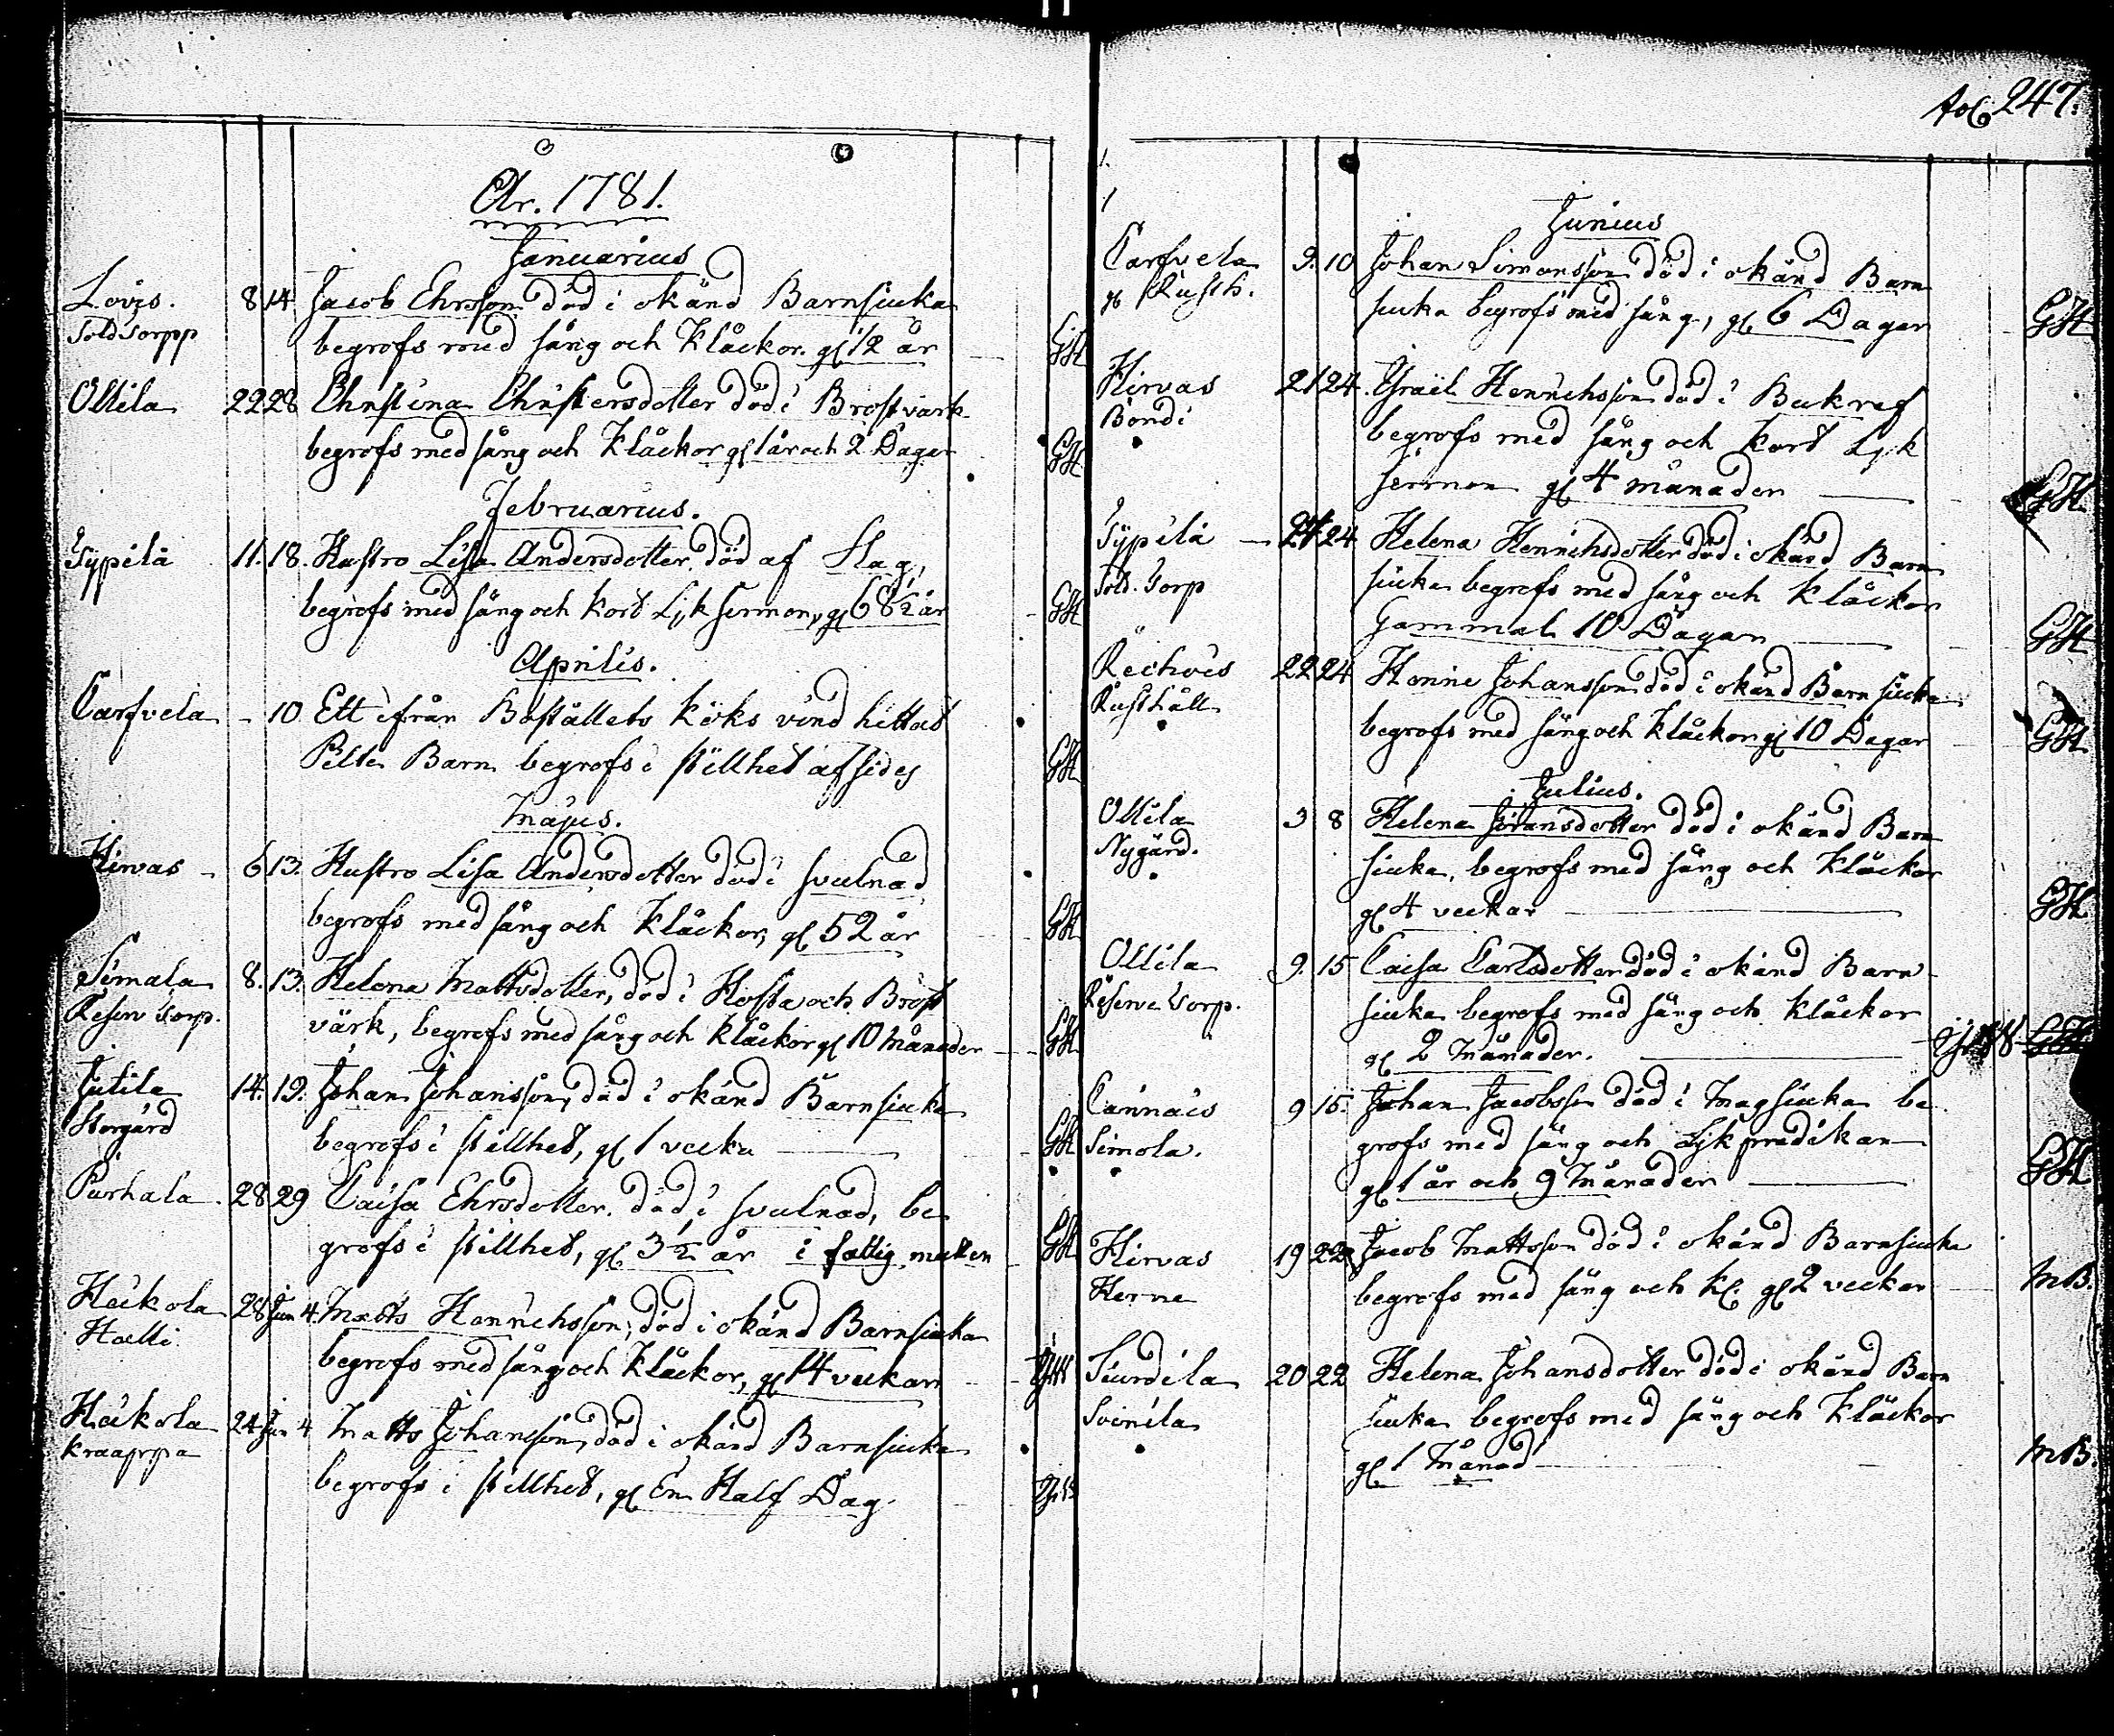 Fol. 247.
År. 1781.
Januarius
Lovis. 8 14 Jacob Ehrsson död i okänd Barnsiuka
Sold Torpp begrofs med sång och Klåckor. gl 12 år GH
Ollila 22 28 Christina Christersdotter död i Bröstvärk
begrofs med sång och Klåckor gl 1 år och 2 Dagar GH
Februarius.
Typilä 11. 18. Hustro Lisa Andersdotter död af Slag,
begrofs med sång och kort Lijk sermon, gl 68½ år GH
Aprilis.
Carfvela - 10 Ett ifrån Bostållets köks vind hittat
Pilte Barn begrofs i stillhet afsides GH
Majus.
Hirvas - 6 13. Hustro Lisa Andersdotter död i svulnad
begrofs med sång och Klåckor, gl 52 år GH
Simala 8. 13. Helena Mattsdotter, död i Hosta och Bröst
Reserv Torp. värk, begrofs med sång och Klåckor gl 10 Månader GH
Jutila 14. 19. Johan Johansson, död i okänd Barnsiuka
Storgård begrofs i stillhet, gl 1 vecka GH
Purhala 28 29 Caisa Ehrsdotter död i svulnad, be
grofs i stillhet, gl 3½ år i fattig mullen GH
Häikola 28 Jun 4. Matts Henrichsson, död i okänd Barnsiuka
Hælli begrofs med sång och Klåckor, gl 14 veckor
Häikola 24 Jun 4 Matts Johansson, död i okänd Barnsiuka
Kraappa begrofs i stillhet, gl En Half Dag.
Junius
Carfvela 9. 10 Johan Simonsson död i okänd Barn
Rusth. siuka begrofs med sång, gl 6 Dagar GH
Hirvas 21 24. Israel Henrichsson död i Bukref
Bondi begrofs med sång och kort Lijk
sermon gl 4 månader GH
Typilä - 24 24 Helena Henrichsdotter död i okänd Barn
Sold. Torp siuka begrofs med sång och Klåckor
Gammal 10 Dagar GH
Reihvis 22 24 Henric Johansson död i okänd Barn siuka
Rusthåll begrofs med sång och Klåckor gl 10 Dagar GH
Julius.
Ollila 3 8 Helena Göransdotter död i okänd Barn
Nygård. siuka, begrofs med sång och Klåckor
gl 4 veckor GH
Ollila 9. 15 Caisa Carlsdotter död i okänd Barn
Reserve Torp. siuka begrofs med sång och Klåckor
gl 2 Månader.
Cannais 9 15. Johan Jacobsson död i Magsiuka be
Simola. grofs med sång och Lijk predikan
gl 1 år och 9 Månader GH
Hirvas 19 22 Jacob Mattsson död i okänd Barnsiuka
Herne begrofs med sång och Kl. gl 2 veckor MB.
Siurdila 20 22 Helena Johansdotter död i okänd Barn
Soinila siuka begrofs med sång och Klåckor
gl 1 Månad MB.